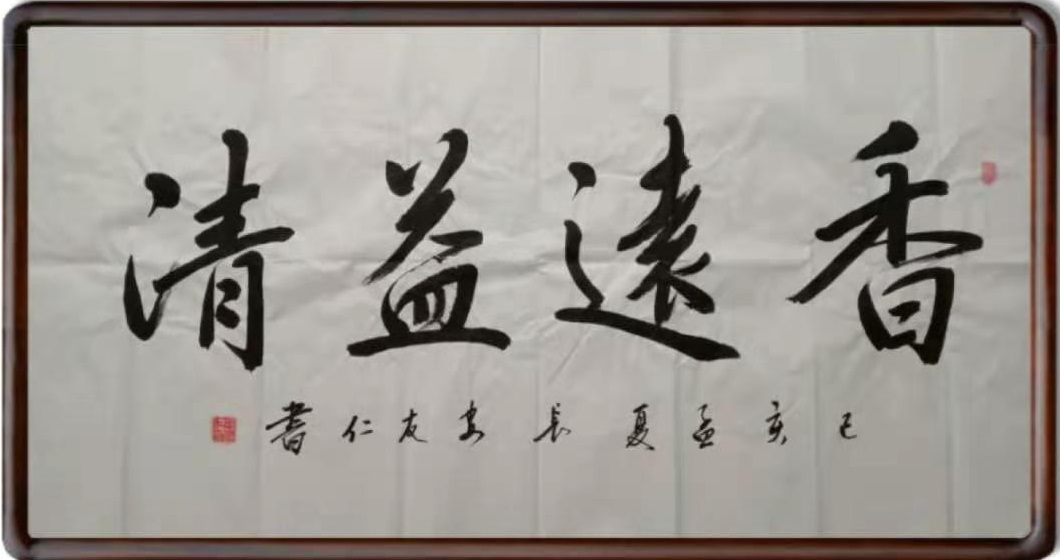 香遠益清
己亥孟夏長安友仁書